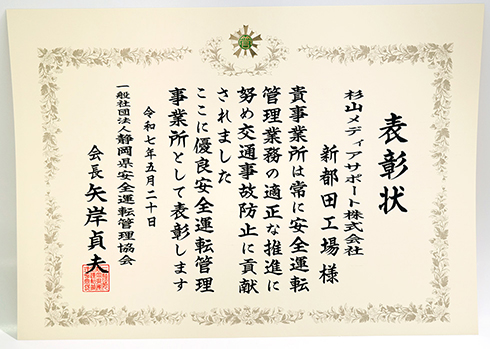 表彰状
杉山メディアサポート株式会社
新都田工場 様
貴事業所は常に安全運転
管理業務の適正な推進に
努め交通事故防止に貢献
されました
ここに優良安全運転管理
事業所として表彰します
令和七年五月二十日
一般社団法人静岡県安全運転管理協会
会長 矢岸貞夫